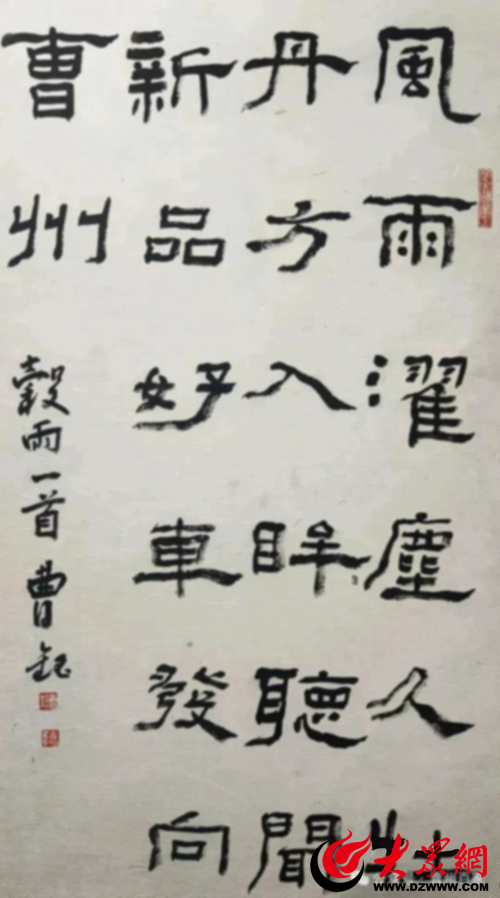 風雨濯塵久牡
丹方入眸聽聞
新品好車發向
曹州
穀雨一首曹鈺
大眾網
WWW.DZWWW.COM